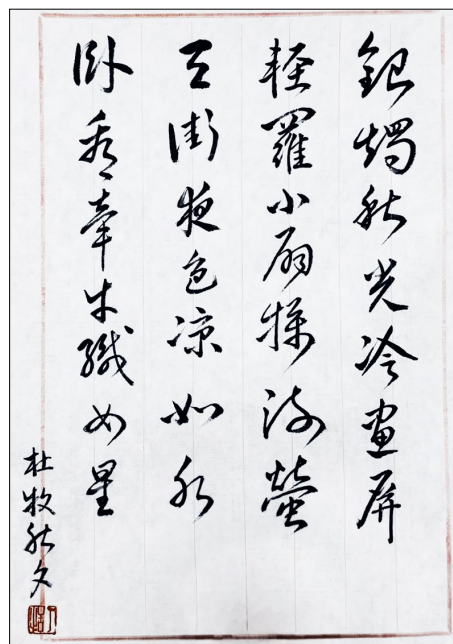 銀燭秋光冷畫屏
輕羅小扇撲流螢
天街夜色凉如水
臥看牽牛織女星
杜牧秋夕